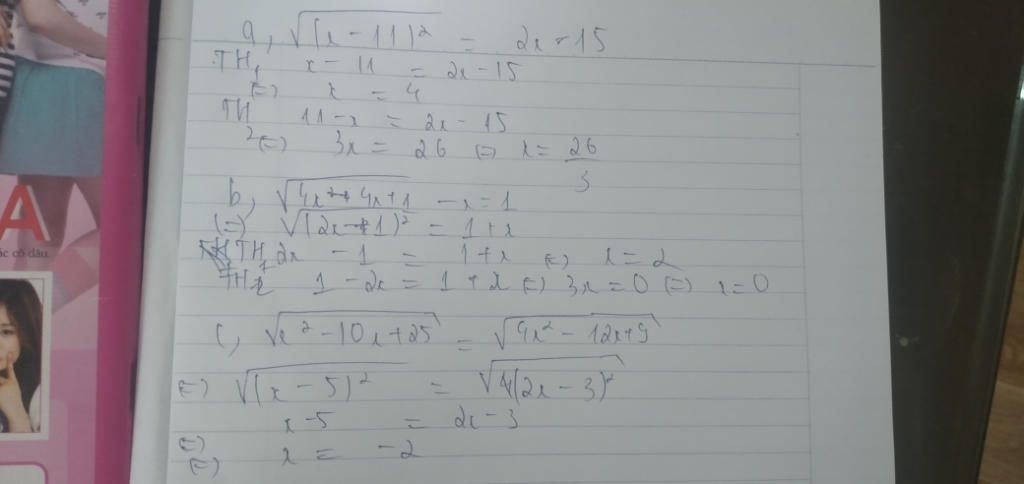 a, √(x - 11)² = 2x - 15
TH1 x - 11 = 2x - 15
(=) x = 4
TH 11 - x = 2x - 15
2 (=) 3x = 26 (=) x = 26/3
b, √4x² - 4x + 1 - x = 1
(=) √(2x - 1)² = 1 + x
TH1 2x - 1 = 1 + x (=) x = 2
TH2 1 - 2x = 1 + x (=) 3x = 0 (=) x = 0
c, √x² - 10x + 25 = √4x² - 12x + 9
(=) √(x - 5)² = √4(2x - 3)²
x - 5 = 2x - 3
(=)
(=) x = -2
A
ắc cô dâu.